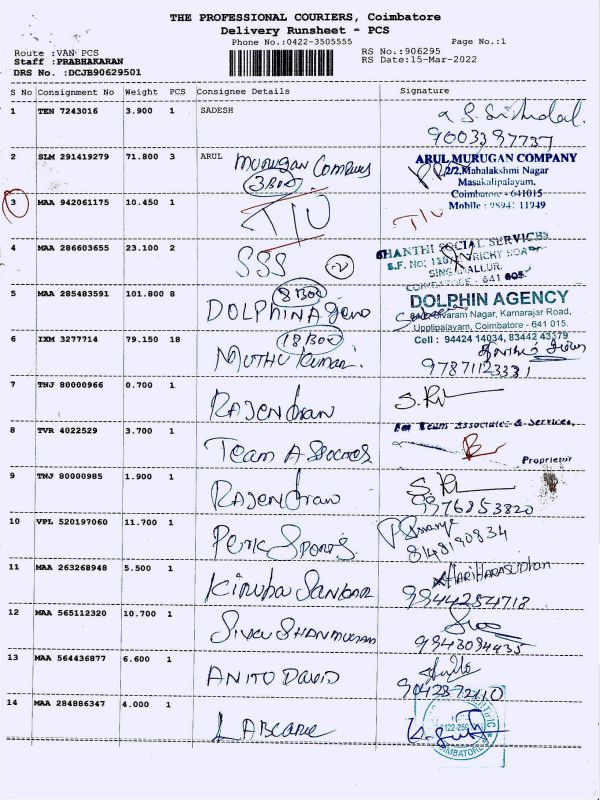 THE PROFESSIONAL COURIERS, Coimbatore
Delivery Runsheet - PCS
Phone No.:0422-3505555
Page No.:1
Route :VAN PCS
RS No.:906295
Staff :PRABHAKARAN
RS Date:15-Mar-2022
DRS No. :DCJB90629501
S No Consignment No Weight PCS Consignee Details Signature
1 TEN 7243016 3.900 1 SADESH
9003397737
2 SLM 291419279 71.800 3 ARUL Murugan Company
3 Box
ARUL MURUGAN COMPANY
2/2, Mahalakshmi Nagar
Masakalipalayam,
Coimbatore - 641015
Mobile : 98941 11949
3 MAA 942061175 10.450 1 T/U T/U
4 MAA 286603655 23.100 2 SSS 2
SHANTHI SOCIAL SERVICES
S.F. No: TRICHY ROAD
SINGANALLUR,
COIMBATORE - 641 005
5 MAA 285483591 101.800 8 8 Box
DOLPHIN Agency
DOLPHIN AGENCY
Sivaram Nagar, Kamarajar Road,
Upplipalayam, Coimbatore - 641 015.
Cell : 94424 14034, 83442 43379
6 IXM 3277714 79.150 18 18 Box
MUTHU Kumar.
97871123331
7 TNJ 80000966 0.700 1 RAJENdran
8 TVR 4022529 3.700 1 Team Associates
For Team Associates & Services,
Proprietor
9 TNJ 80000985 1.900 1 RAJENdran
9976853820
10 VPL 520197060 11.700 1 Perk Sports
8148190834
11 MAA 263268948 5.500 1 Kiruba Sankar
HARIHARASUDHAN
12 MAA 565112320 10.700 1 SIVA SHANMUGAM
13 MAA 564436877 6.600 1 ANITO DAVID
9042372110
14 MAA 284886347 4.000 1